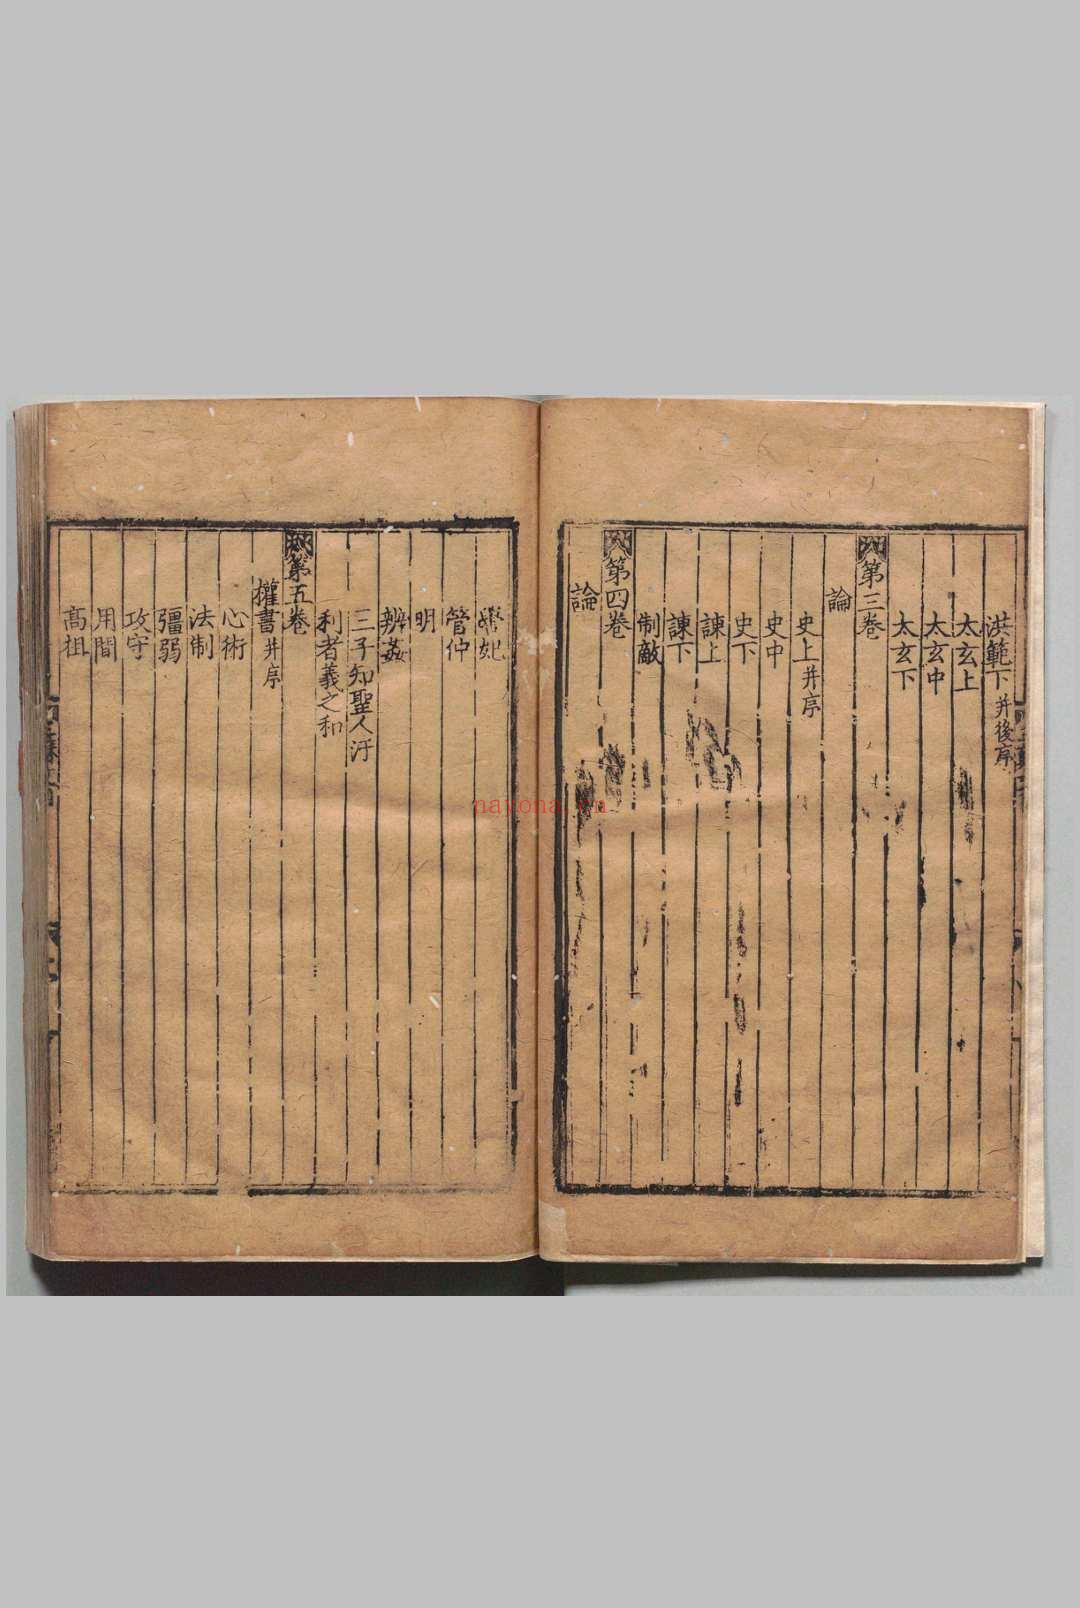 洪範下并後序
太玄上
太玄中
太玄下
第三卷
論
史上并序
史中
史下
諫上
諫下
制敵
第四卷
論
嚳妃
管仲
明
辨姦
三子知聖人汙
利者義之和
第五卷
權書并序
心術
法制
彊弱
攻守
用間
高祖
nayona.cn